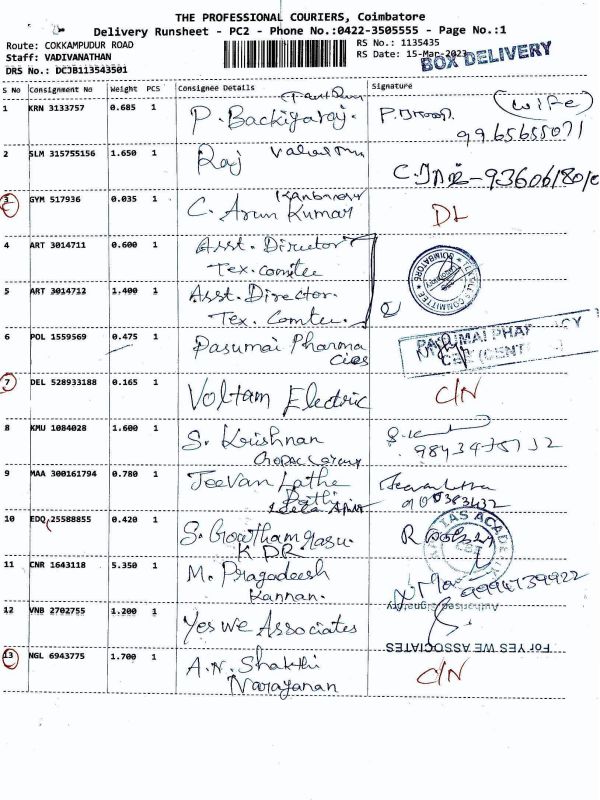 THE PROFESSIONAL COURIERS, Coimbatore
Delivery Runsheet - PC2 - Phone No.:0422-3505555 - Page No.:1
Route: COKKAMPUDUR ROAD
Staff: VADIVANATHAN
DRS No.: DCJB113543501
RS No.: 1135435
RS Date: 15-Mar-2023
BOX DELIVERY
S No Consignment No Weight PCS Consignee Details Signature
1 KRN 3133757 0.685 1 P. Backiyaraj. (Wife)
9965655071
2 SLM 315755156 1.650 1 Raj
3 GYM 517936 0.035 1 C. Arun Kumar DL
4 ART 3014711 0.600 1 Asst. Director
Tex. comtee
5 ART 3014712 1.400 1 Asst. Director.
Tex. Comtee.
6 POL 1559569 0.475 1 Pasumai Pharma
7 DEL 528933188 0.165 1 Voltam Electric C/N
8 KMU 1084028 1.600 1 S. Krishnan
9 MAA 300161794 0.780 1 Jeevan Lathe
10 EDQ 25588855 0.420 1 S. Gowthamrasu.
K.P.R.
11 CNR 1643118 5.350 1 M. Pragadeesh
Kannan. 9994739922
Authorised Signatory
12 VNB 2702755 1.200 1 Yes We Associates
For YES WE ASSOCIATES
13 NGL 6943775 1.700 1 A.N. Shakthi C/N
Narayanan